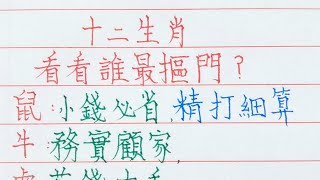 十二生肖
看看誰最摳門？
鼠：小錢必省，精打細算
牛：務實顧家，